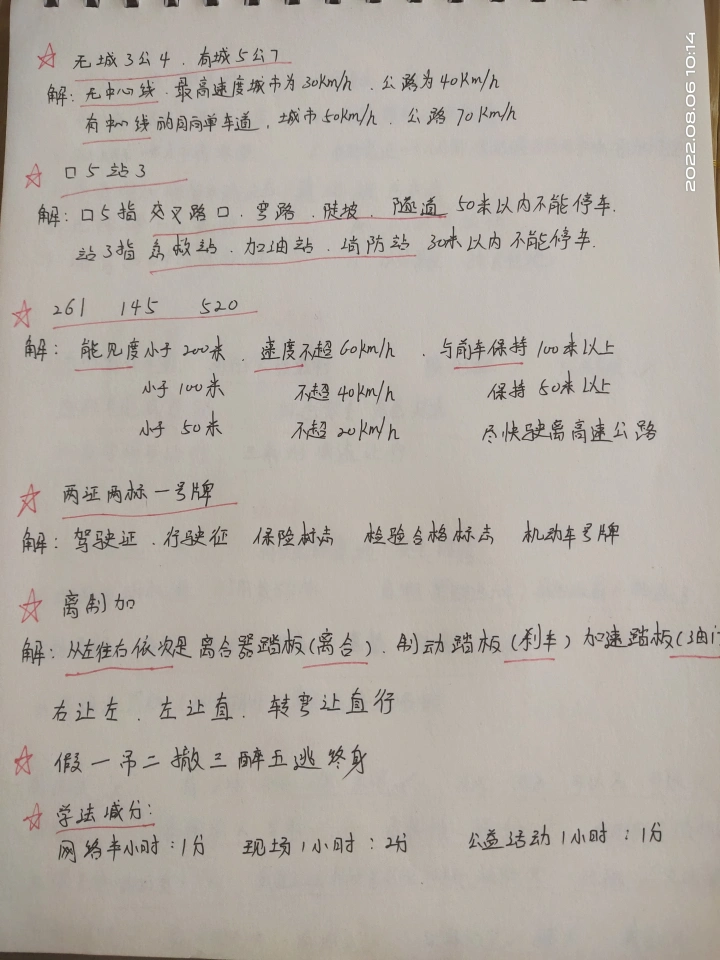 ☆ 无城3公4、有城5公7
解：无中心线、最高速度城市为30km/h、公路为40km/h
有中心线的同向单车道，城市50km/h、公路70km/h
☆ 口5站3
解：口5指交叉路口、弯路、陡坡、隧道50米以内不能停车.
站3指急救站、加油站、消防站30米以内不能停车.
☆ 261 145 520
解：能见度小于200米、速度不超60km/h、与前车保持100米以上
小于100米 不超40km/h 保持50米以上
小于50米 不超20km/h 尽快驶离高速公路
☆ 两证两标一号牌
解：驾驶证、行驶证 保险标志 检验合格标志 机动车号牌
☆ 离制加
解：从左往右依次是离合器踏板(离合)、制动踏板(刹车) 加速踏板(油门
右让左、左让直、转弯让直行
☆ 假一吊二撤三醉五逃终身
☆ 学法减分：
网络半小时：1分 现场1小时：2分 公益活动1小时：1分
2022.08.06 10:14